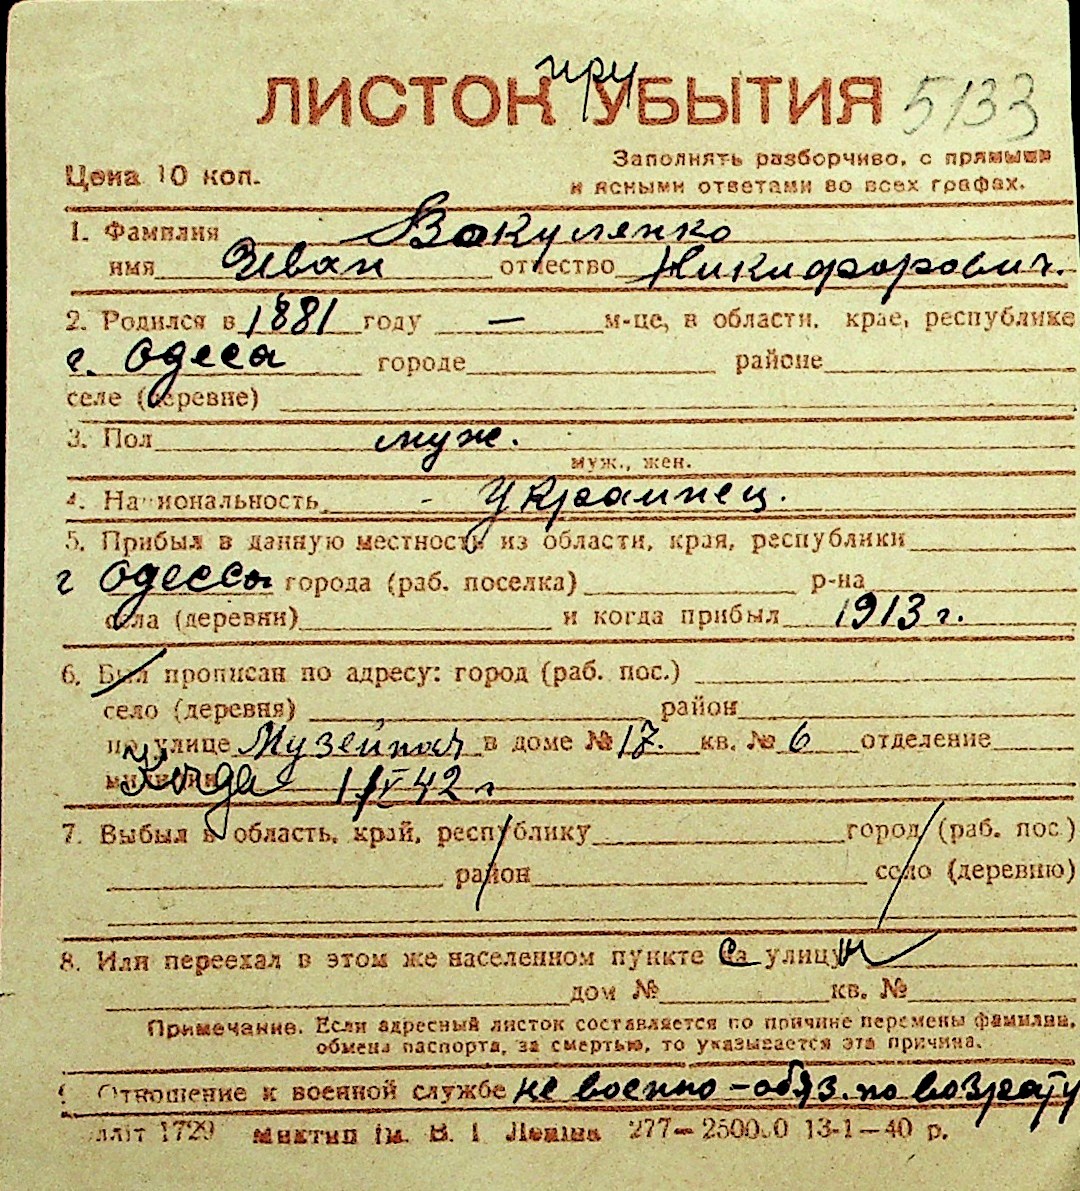 ЛИСТОК при УБЫТИЯ 5133
Цена 10 коп.
Заполнять разборчиво, с прямыми
и ясными ответами во всех графах.
1. Фамилия Вакуленко
имя Иван отчество Никифорович.
2. Родился в 1881 году — м-це, в области, крае, республике
г. Одеса городе районе
селе (деревне)
3. Пол муж.
муж., жен.
4. Национальность - Украинец.
5. Прибыл в данную местность из области, края, республики
г Одессы города (раб. поселка) р-на
села (деревни) и когда прибыл 1913 г.
6. Был прописан по адресу: город (раб. пос.)
село (деревня) район
по улице Музейная в доме № 17. кв. № 6 отделение
милиции Когда 1/IV 42 г
7. Выбыл в область, край, республику город (раб. пос.)
район село (деревню)
8. Или переехал в этом же населенном пункте с улицы
дом № кв. №
Примечание. Если адресный листок составляется по причине перемены фамилии,
обмена паспорта, за смертью, то указывается эта причина.
9. Отношение к военной службе не военно-обяз. по возрасту
1729 Миктип ім. В. І Леніна 277—250000 13-1—40 р.